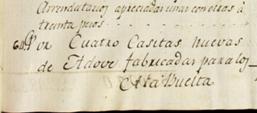 Arrendatarios apreciadas unas con otras à
treinta pesos
60. Por Cuatro Casitas nuevas
de Adove fabricadas para los
A la Vuelta